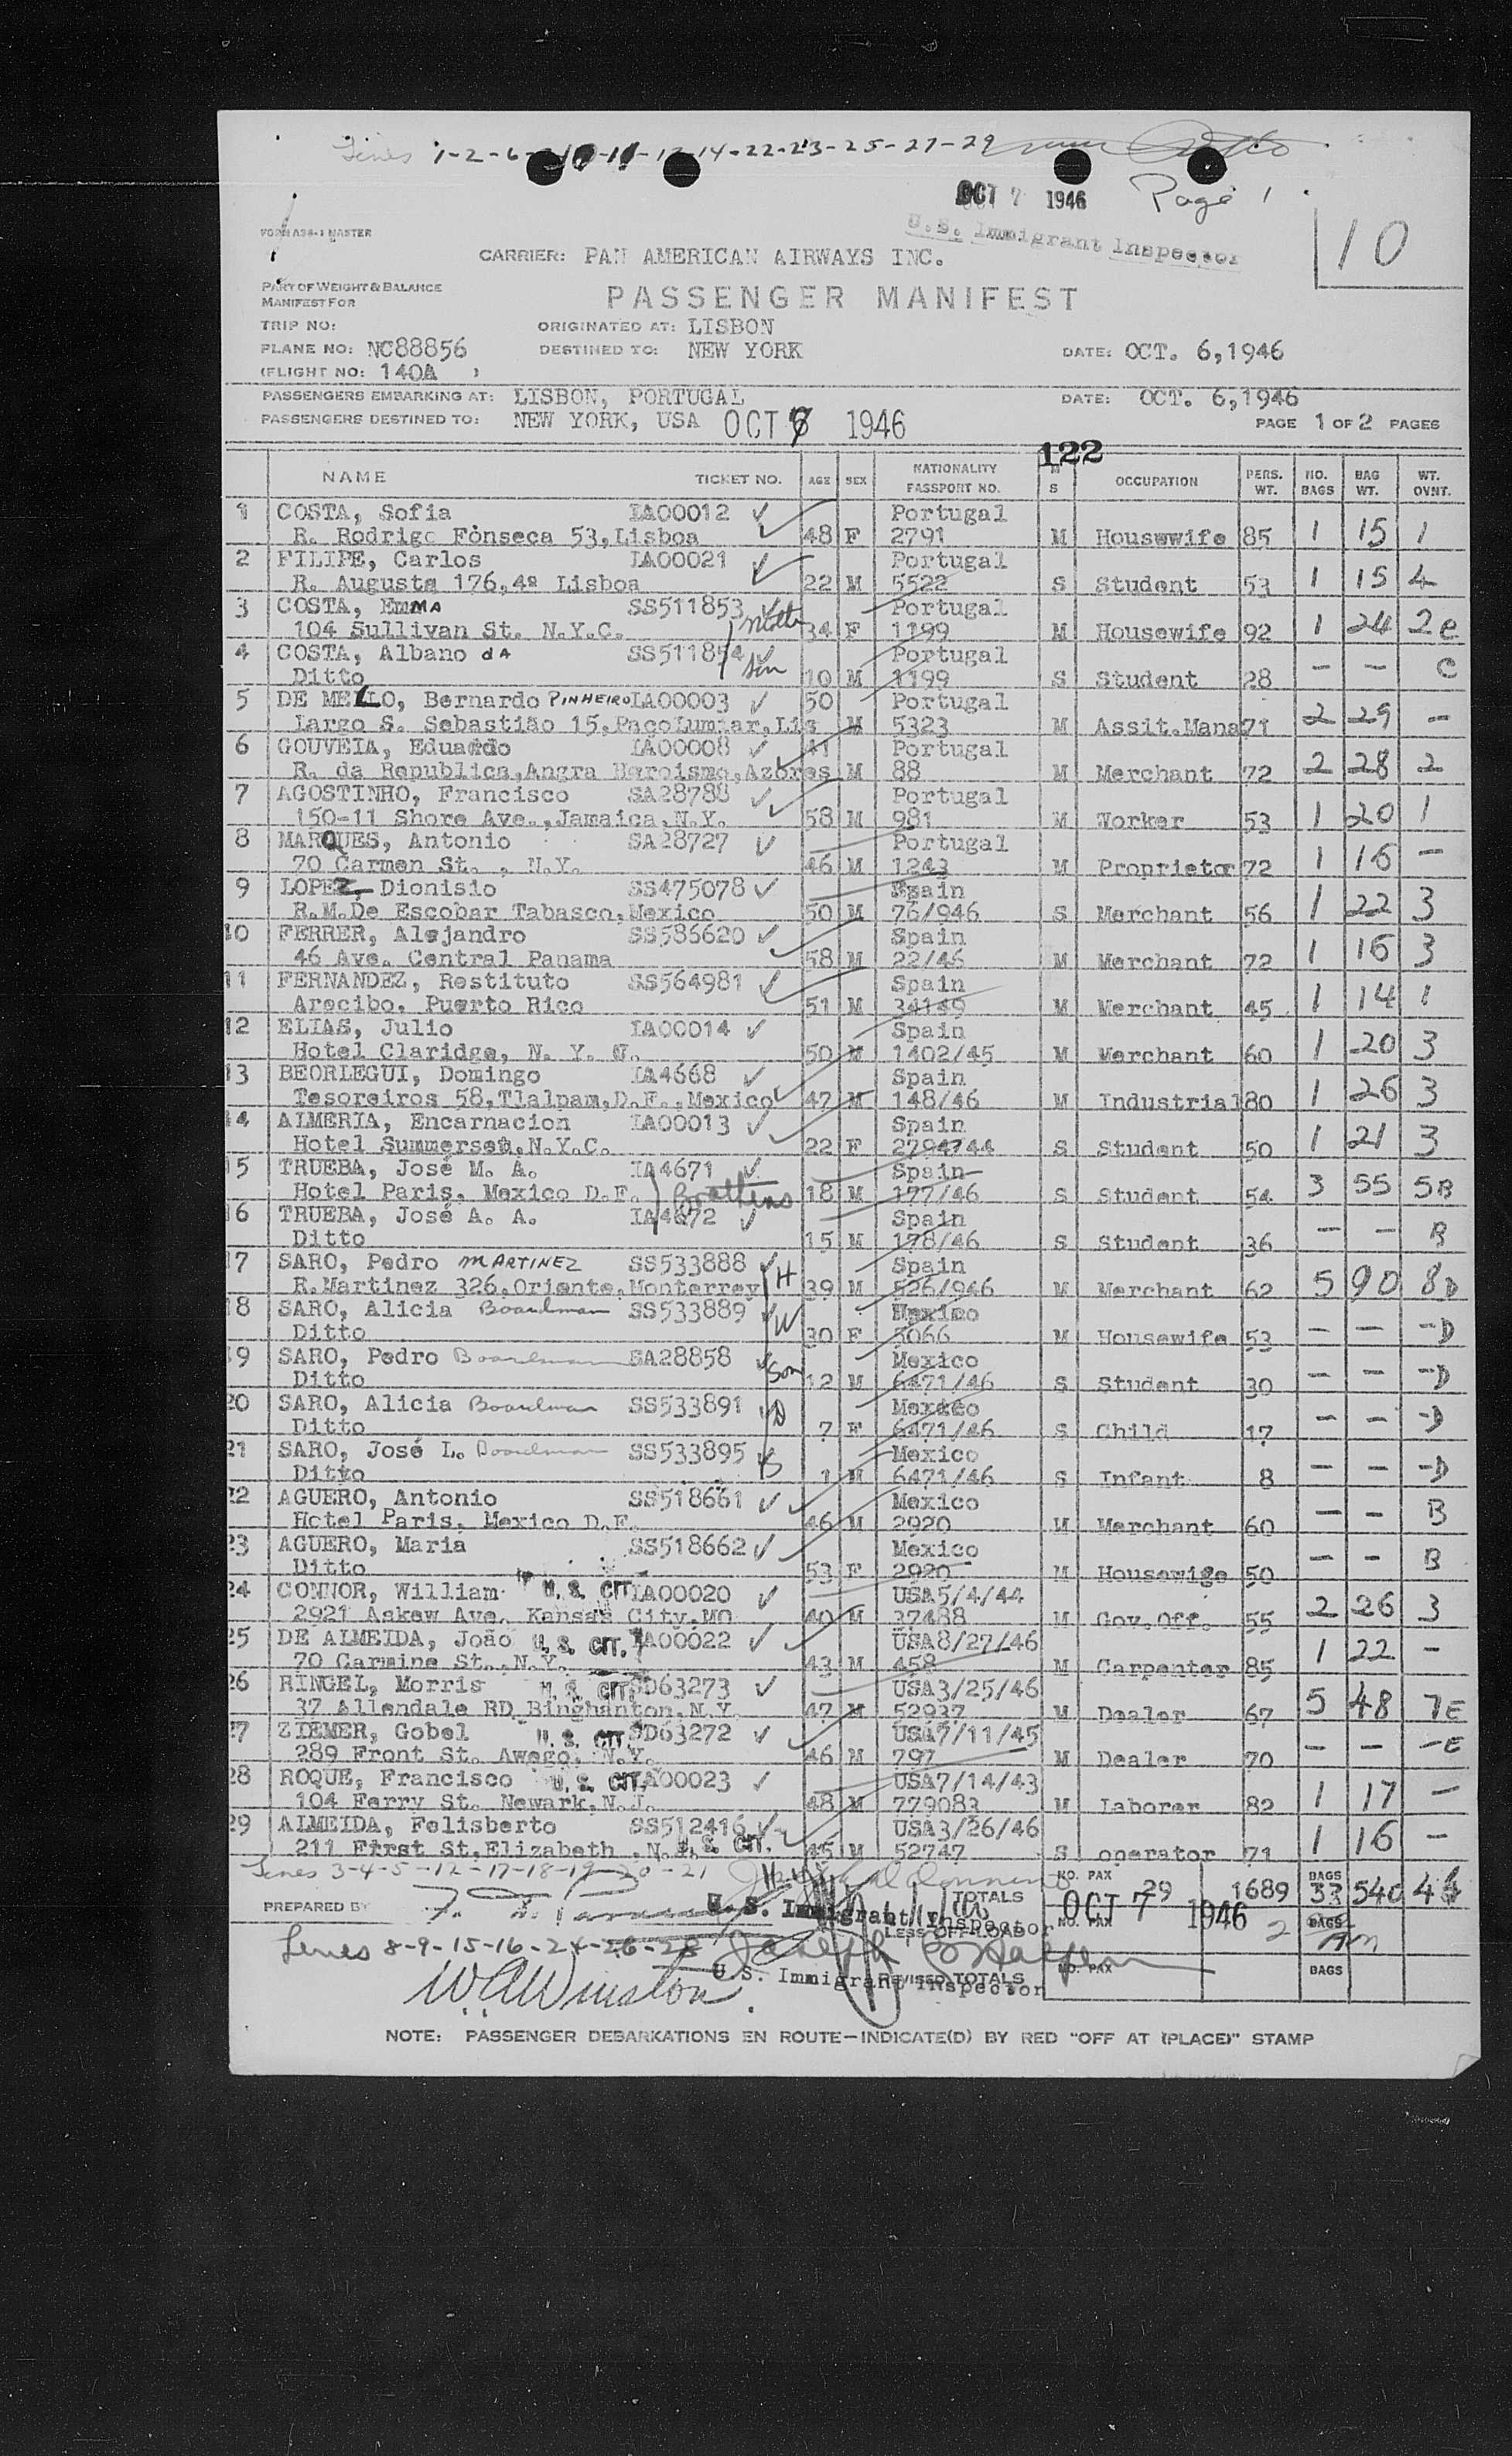 Lines 1-2-6-7-10-11-13-14-22-23-25-27-29
OCT 7 1946 Page 1
U.S. Immigrant Inspector
10
FORM A38-1 MASTER
CARRIER: PAN AMERICAN AIRWAYS INC.
PART OF WEIGHT & BALANCE
MANIFEST FOR
PASSENGER MANIFEST
TRIP NO: ORIGINATED AT: LISBON
PLANE NO: NC88856 DESTINED TO: NEW YORK DATE: OCT. 6,1946
(FLIGHT NO: 140A )
PASSENGERS EMBARKING AT: LISBON, PORTUGAL DATE: OCT. 6,1946
PASSENGERS DESTINED TO: NEW YORK, USA OCT 1946 PAGE 1 OF 2 PAGES
122
NAME TICKET NO. AGE SEX NATIONALITY PASSPORT NO. M S OCCUPATION PERS. WT. NO. BAGS BAG WT. WT. OVNT.
1 COSTA, Sofia IA00012 Portugal
R. Rodrigo Fonseca 53,Lisboa 48 F 2791 M Housewife 85 1 15 1
2 FILIPE, Carlos IA00021 Portugal
R. Augusta 176,4º Lisboa 22 M 5522 S Student 53 1 15 4
3 COSTA, EmMA SS511853 Portugal
104 Sullivan St. N.Y.C. 34 F 1199 M Housewife 92 1 24 2e
4 COSTA, Albano dA SS511854 Portugal
Ditto 10 M 1199 S Student 28 - - C
5 DE MELLO, Bernardo PINHEIRO IA00003 50 Portugal
Largo S. Sebastião 15,PaçoLumiar,Lis M 5323 M Assit.Mana 71 2 29 -
6 GOUVEIA, Eduardo IA00008 41 Portugal
R. da Republica,Angra Heroismo,Azores M 88 M Merchant 72 2 28 2
7 AGOSTINHO, Francisco SA28788 Portugal
150-11 Shore Ave.,Jamaica,N.Y. 58 M 981 M Worker 53 1 20 1
8 MARQUES, Antonio SA28727 Portugal
70 Carmen St. , N.Y. 46 M 1243 M Proprietor 72 1 16 -
9 LOPEZ, Dionisio SS475078 Spain
R.M.De Escobar Tabasco,Mexico 50 M 76/946 S Merchant 56 1 22 3
10 FERRER, Alejandro SS586620 Spain
46 Ave. Central Panama 58 M 22/46 M Merchant 72 1 16 3
11 FERNANDEZ, Restituto SS564981 Spain
Arecibo, Puerto Rico 51 M 34149 M Merchant 45 1 14 1
12 ELIAS, Julio IA00014 Spain
Hotel Claridge, N. Y. C. 50 M 1402/45 M Merchant 60 1 20 3
13 BEORLEGUI, Domingo IA4668 Spain
Tesoreiros 58,Tlalpam,D.F.,Mexico 47 M 148/46 M Industrial 80 1 26 3
14 ALMERIA, Encarnacion IA00013 Spain
Hotel Summerset,N.Y.C. 22 F 2794744 S Student 50 1 21 3
15 TRUEBA, José M. A. IA4671 Spain
Hotel Paris, Mexico D.F. 18 M 177/46 S Student 54 3 55 5B
16 TRUEBA, José A. A. IA4672 Spain
Ditto 15 M 178/46 S Student 36 - - B
17 SARO, Pedro MARTINEZ SS533888 Spain
R.Martinez 326,Oriente,Monterrey H 39 M 526/946 M Merchant 62 5 90 8D
18 SARO, Alicia Boardman SS533889 Mexico
Ditto W 30 F 5066 M Housewife 53 - - -D
19 SARO, Pedro Boardman SA28858 Mexico
Ditto Son 12 M 6471/46 S Student 30 - - -D
20 SARO, Alicia Boardman SS533891 D Mexico
Ditto 7 F 6471/46 S Child 17 - - -D
21 SARO, José L. Boardman SS533895 Mexico
Ditto S 1 M 6471/46 S Infant 8 - - -D
22 AGUERO, Antonio SS518661 Mexico
Hotel Paris, Mexico D.F. 46 M 2920 M Merchant 60 - - B
23 AGUERO, Maria SS518662 Mexico
Ditto 53 F 2920 M Housewige 50 - - B
24 CONNOR, William U.S. CIT. IA00020 USA5/4/44
2921 Askew Ave. Kansas City,MO 40 M 37488 M Gov.Off. 55 2 26 3
25 DE ALMEIDA, João U.S. CIT. IA00022 USA8/27/46
70 Carmine St.,N.Y. 43 M 458 M Carpenter 85 1 22 -
26 RINGEL, Morris U.S. CIT. SD63273 USA3/25/46
37 Allendale RD Binghanton,N.Y. 47 M 52937 M Dealer 67 5 48 7E
27 ZIEMER, Gobel U.S. CIT. SD63272 USA7/11/45
289 Front St. Awego, N.Y. 46 M 797 M Dealer 70 - - -E
28 ROQUE, Francisco U.S. CIT. IA00023 USA7/14/43
104 Ferry St. Newark,N.J. 48 M 779083 M Laborer 82 1 17 -
29 ALMEIDA, Felisberto SS512416 USA3/26/46
211 First St,Elizabeth ,N.J. U.S. CIT. 45 M 52747 S operator 71 1 16 -
Lines 3-4-5-12-17-18-19-20-21
NO. PAX 29 1689 BAGS 33 540
PREPARED BY U.S. Immigrant Inspector TOTALS OCT 7 1946
LESS OFF-LOAD NO. PAX 2 BAGS
Lines 8-9-15-16-24-26-28
W.A. Winston U.S. Immigrant Inspector REVISED TOTALS NO. PAX BAGS
NOTE: PASSENGER DEBARKATIONS EN ROUTE—INDICATE(D) BY RED "OFF AT (PLACE)" STAMP